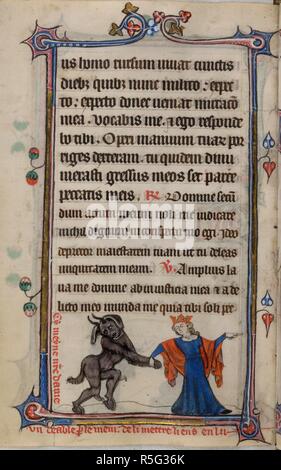 us homo rursum uiuat cunctis
diebz quibz nunc milito : expec
to : expecto donec ueniat mutacio
mea . Vocabis me . & ego responde
bo tibi . Operi manuum tuar por
riges dexteram . tu quidem dinu
merasti gressus meos set parce
peccatis meis . R Domine secun
dum actum meum noli me iudicare
nichil dignum in conspectu tuo egi . ideo
deprecor maiestatem tuam ut tu deleas
iniquitatem meam . V Amplius la
ua me domine ab iniusticia mea & a de
licto meo munda me quia tibi soli pec
mene dame
un deable de li mettre